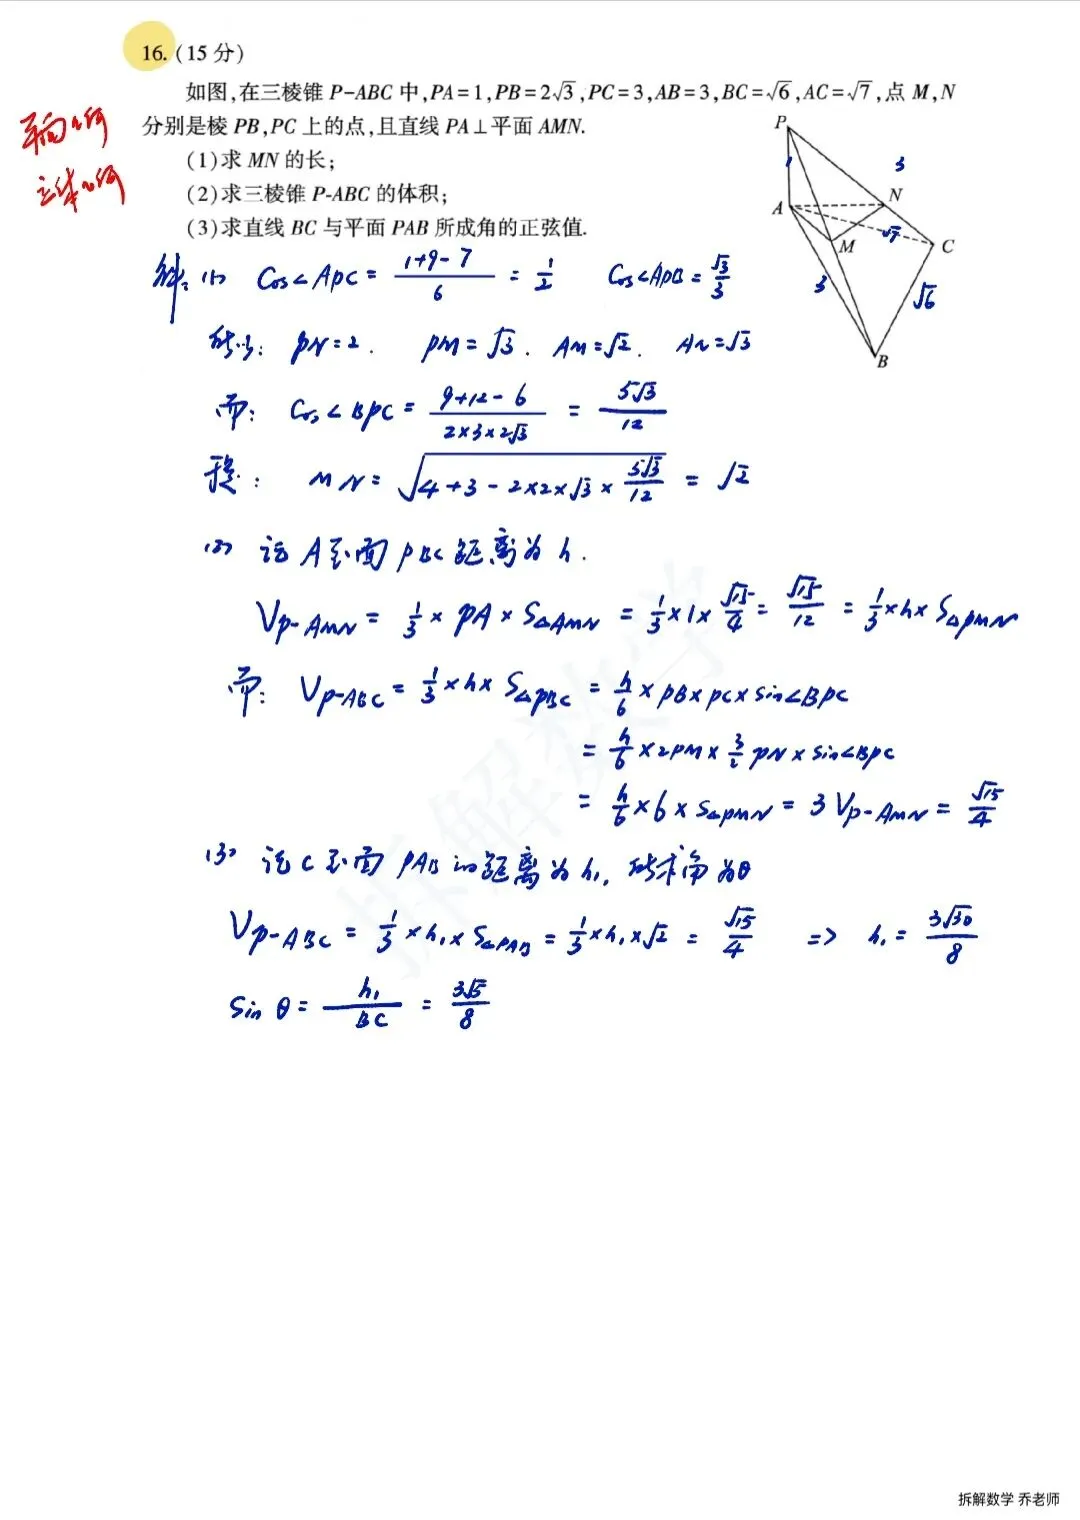 16. (15 分)
如图,在三棱锥 P-ABC 中,PA=1,PB=2√3,PC=3,AB=3,BC=√6,AC=√7,点 M,N
分别是棱 PB,PC 上的点,且直线 PA⊥平面 AMN.
(1)求 MN 的长;
(2)求三棱锥 P-ABC 的体积;
(3)求直线 BC 与平面 PAB 所成角的正弦值.
平面几何
立体几何
P
1
3
A
N
M
√7
C
3
√6
B
解: (1) Cos∠APC = (1+9-7)/6 = 1/2 Cos∠APB = √3/3
所以: PN=2. PM=√3. AM=√2. AN=√3
而: Cos∠BPC = (9+12-6)/(2×3×2√3) = 5√3/12
于是: MN = √(4+3-2×2×√3×5√3/12) = √2
(2) 设 A 到面 PBC 距离为 h.
V_{P-AMN} = 1/3 × PA × S△AMN = 1/3 × 1 × √15/4 = √15/12 = 1/3 × h × S△PMN
而: V_{P-ABC} = 1/3 × h × S△PBC = h/6 × PB × PC × sin∠BPC
= h/6 × 2PM × 3/2 PN × sin∠BPC
= h/6 × 6 × S△PMN = 3 V_{P-AMN} = √15/4
(3) 设 C 到面 PAB 的距离为 h₁, 所求角为θ
V_{P-ABC} = 1/3 × h₁ × S△PAB = 1/3 × h₁ × √2 = √15/4 => h₁ = 3√30/8
Sin θ = h₁/BC = 3√5/8
拆解数学
拆解数学 乔老师